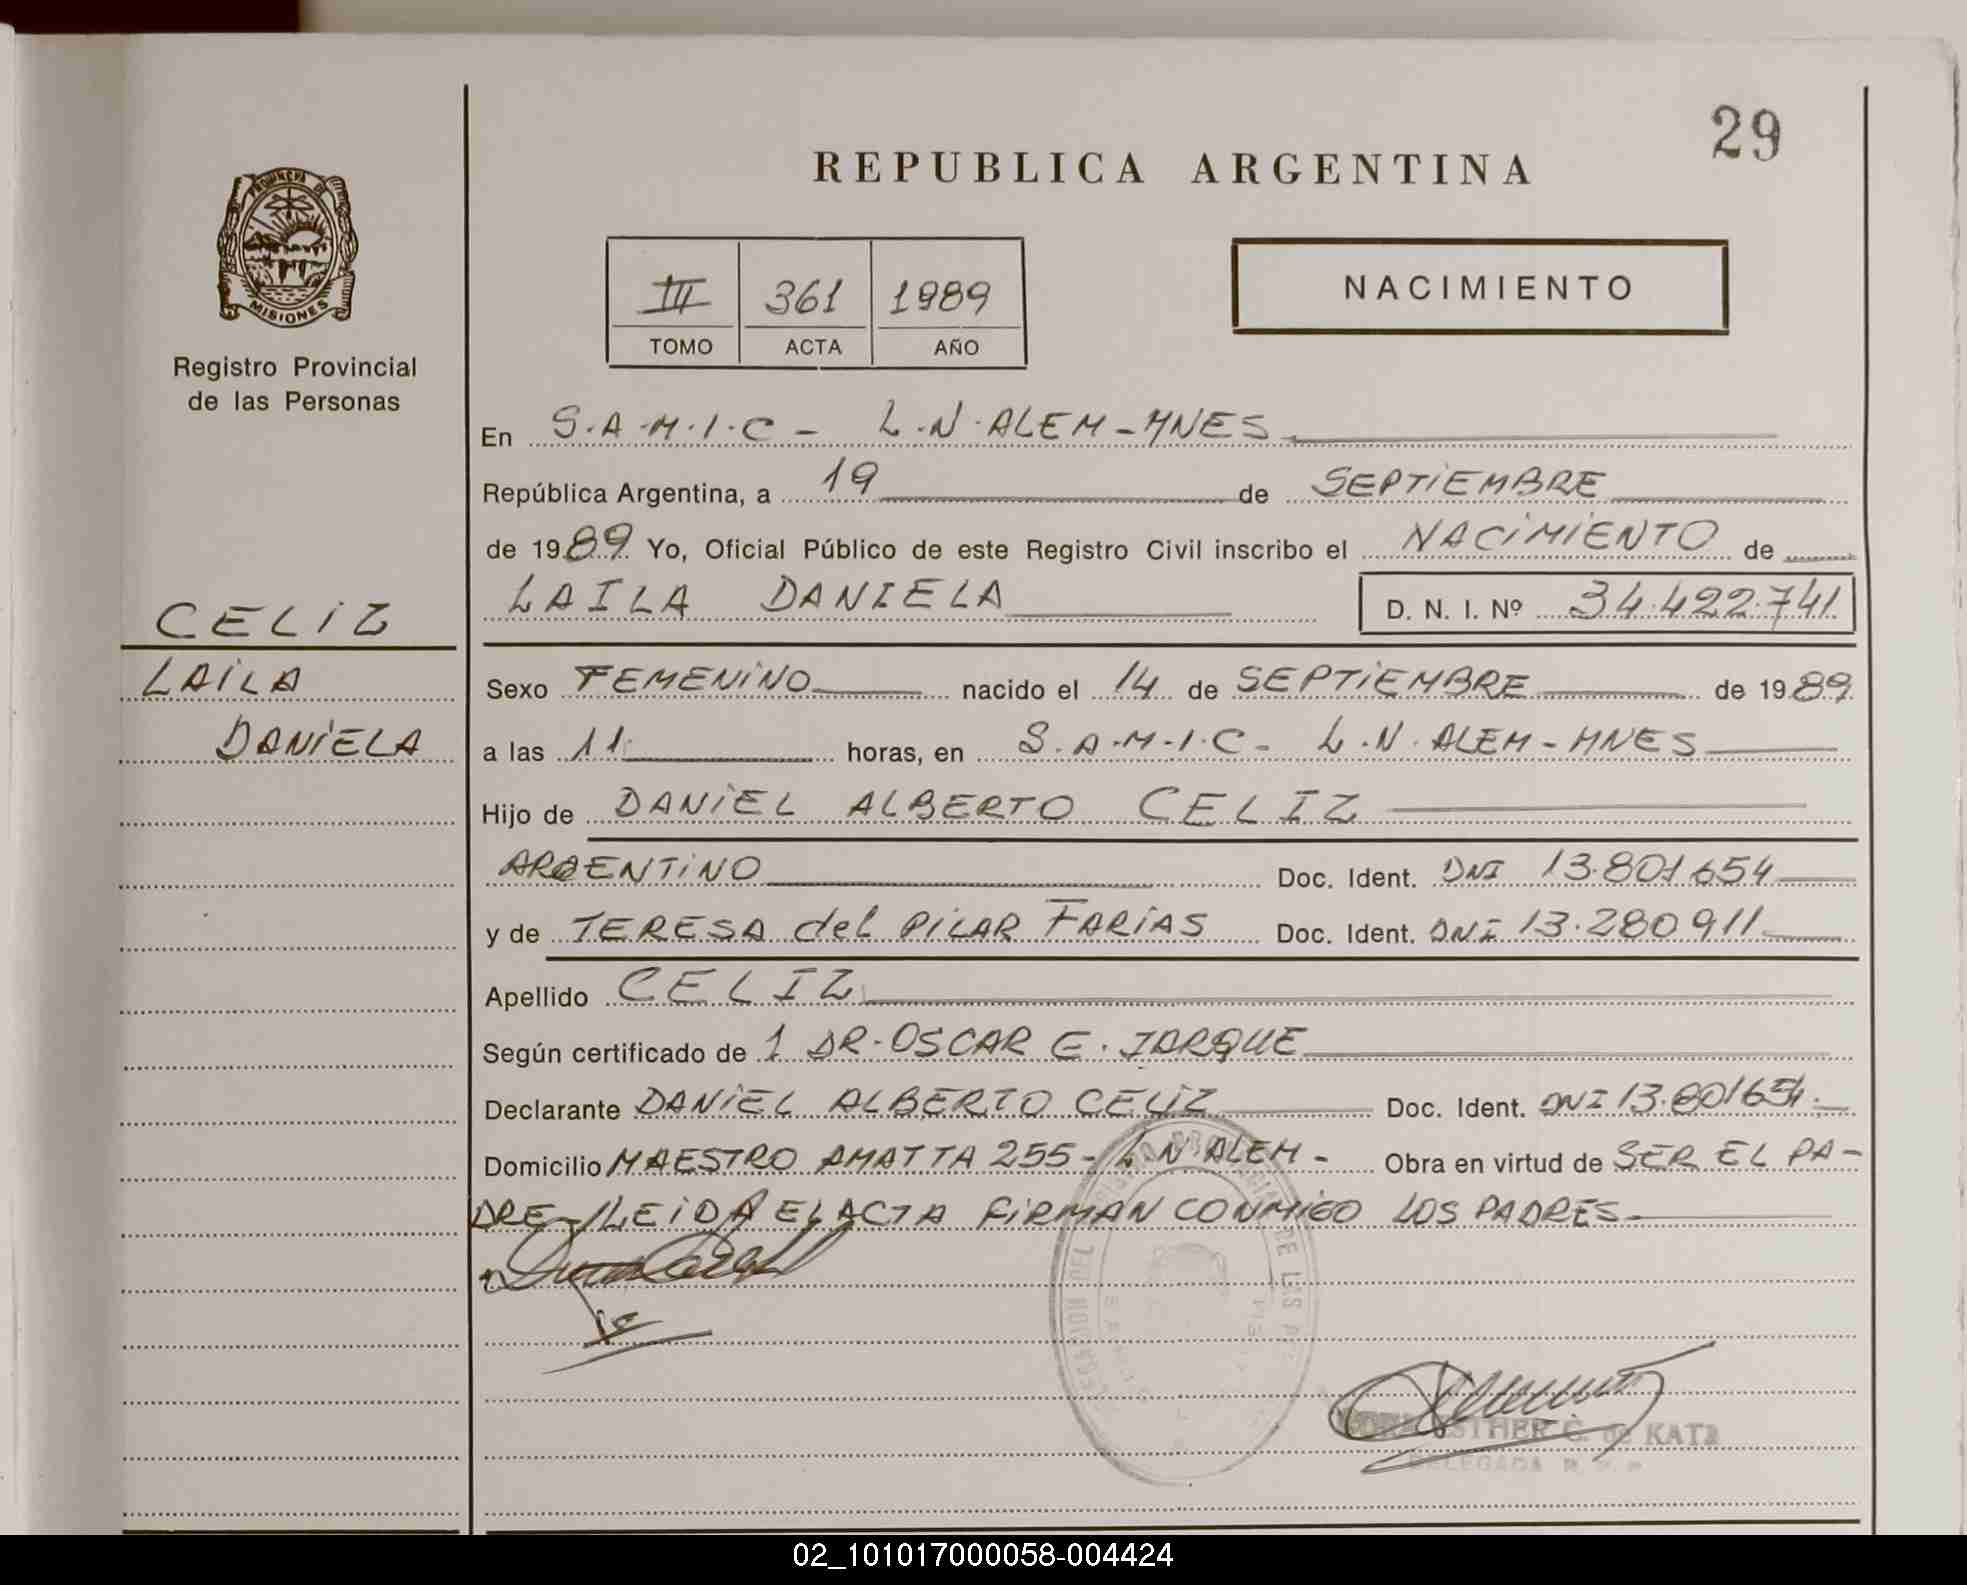 29
REPUBLICA ARGENTINA
PROVINCIA DE
MISIONES
Registro Provincial
de las Personas
III 361 1989
TOMO ACTA AÑO
NACIMIENTO
CELIZ
LAILA
DANIELA
En S.A.M.I.C - L.N. ALEM - MNES
República Argentina, a 19 de SEPTIEMBRE
de 1989 Yo, Oficial Público de este Registro Civil inscribo el NACIMIENTO de
LAILA DANIELA D. N. I. Nº 34.422.741
Sexo FEMENINO nacido el 14 de SEPTIEMBRE de 1989
a las 11 horas, en S.A.M.I.C - L.N. ALEM - MNES
Hijo de DANIEL ALBERTO CELIZ
ARGENTINO Doc. Ident. DNI 13.801.654
y de TERESA del PILAR FARIAS Doc. Ident. DNI 13.280.911
Apellido CELIZ
Según certificado de 1 DR. OSCAR E. JARQUE
Declarante DANIEL ALBERTO CELIZ Doc. Ident. DNI 13.801654.
Domicilio MAESTRO AMATTA 255 - L N ALEM - Obra en virtud de SER EL PA-
DRE - LEIDA EL ACTA FIRMAN CONMIGO LOS PADRES.
ESTHER C. de KATZ
DELEGADA
02_101017000058-004424